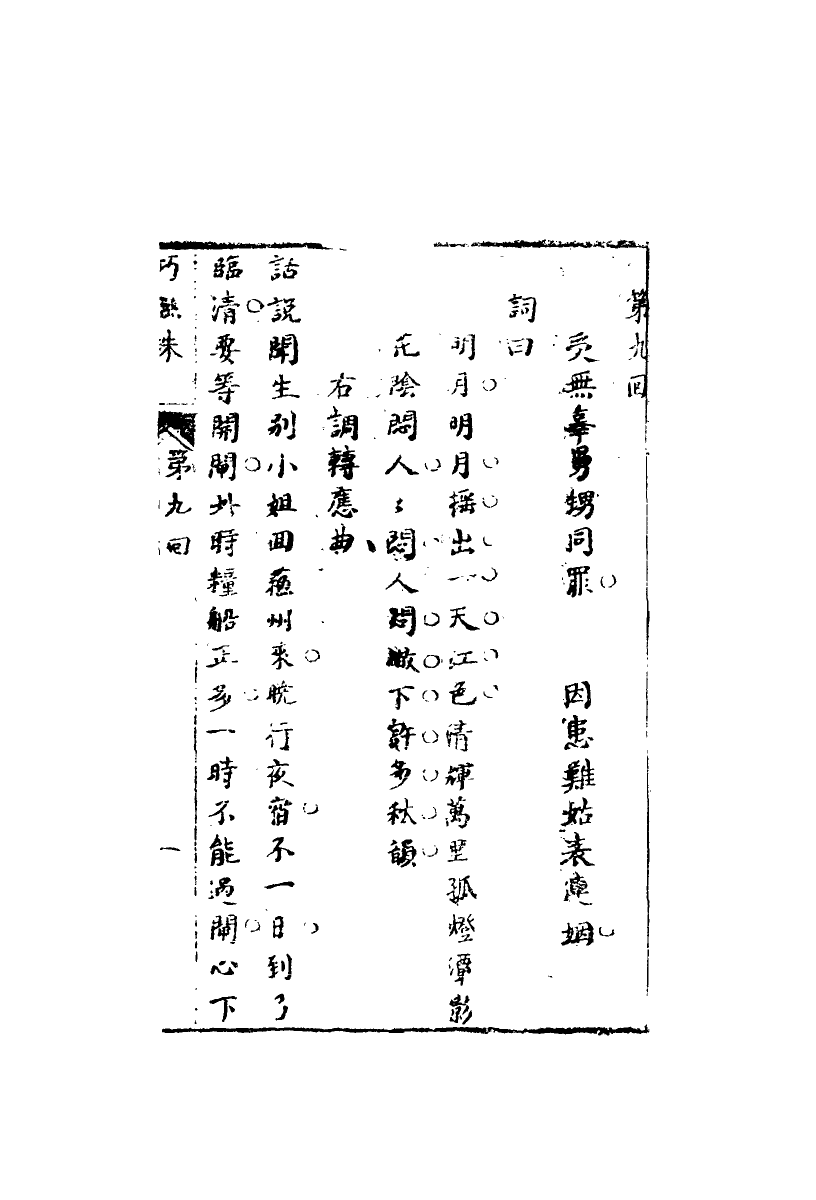 第九回
受無辜男甥同罪　因患難姑表連姻
詞曰
明月明月揺出一天江色清輝萬里孤燈潭影
花陰悶人人〻悶人問撇下許多秋韻
右調轉應曲
話說聞生別小姐回蘇州來曉行夜宿不一日到了
臨清要等開閘此時糧船正多一時不能過閘心下
巧聯珠　第九回　一